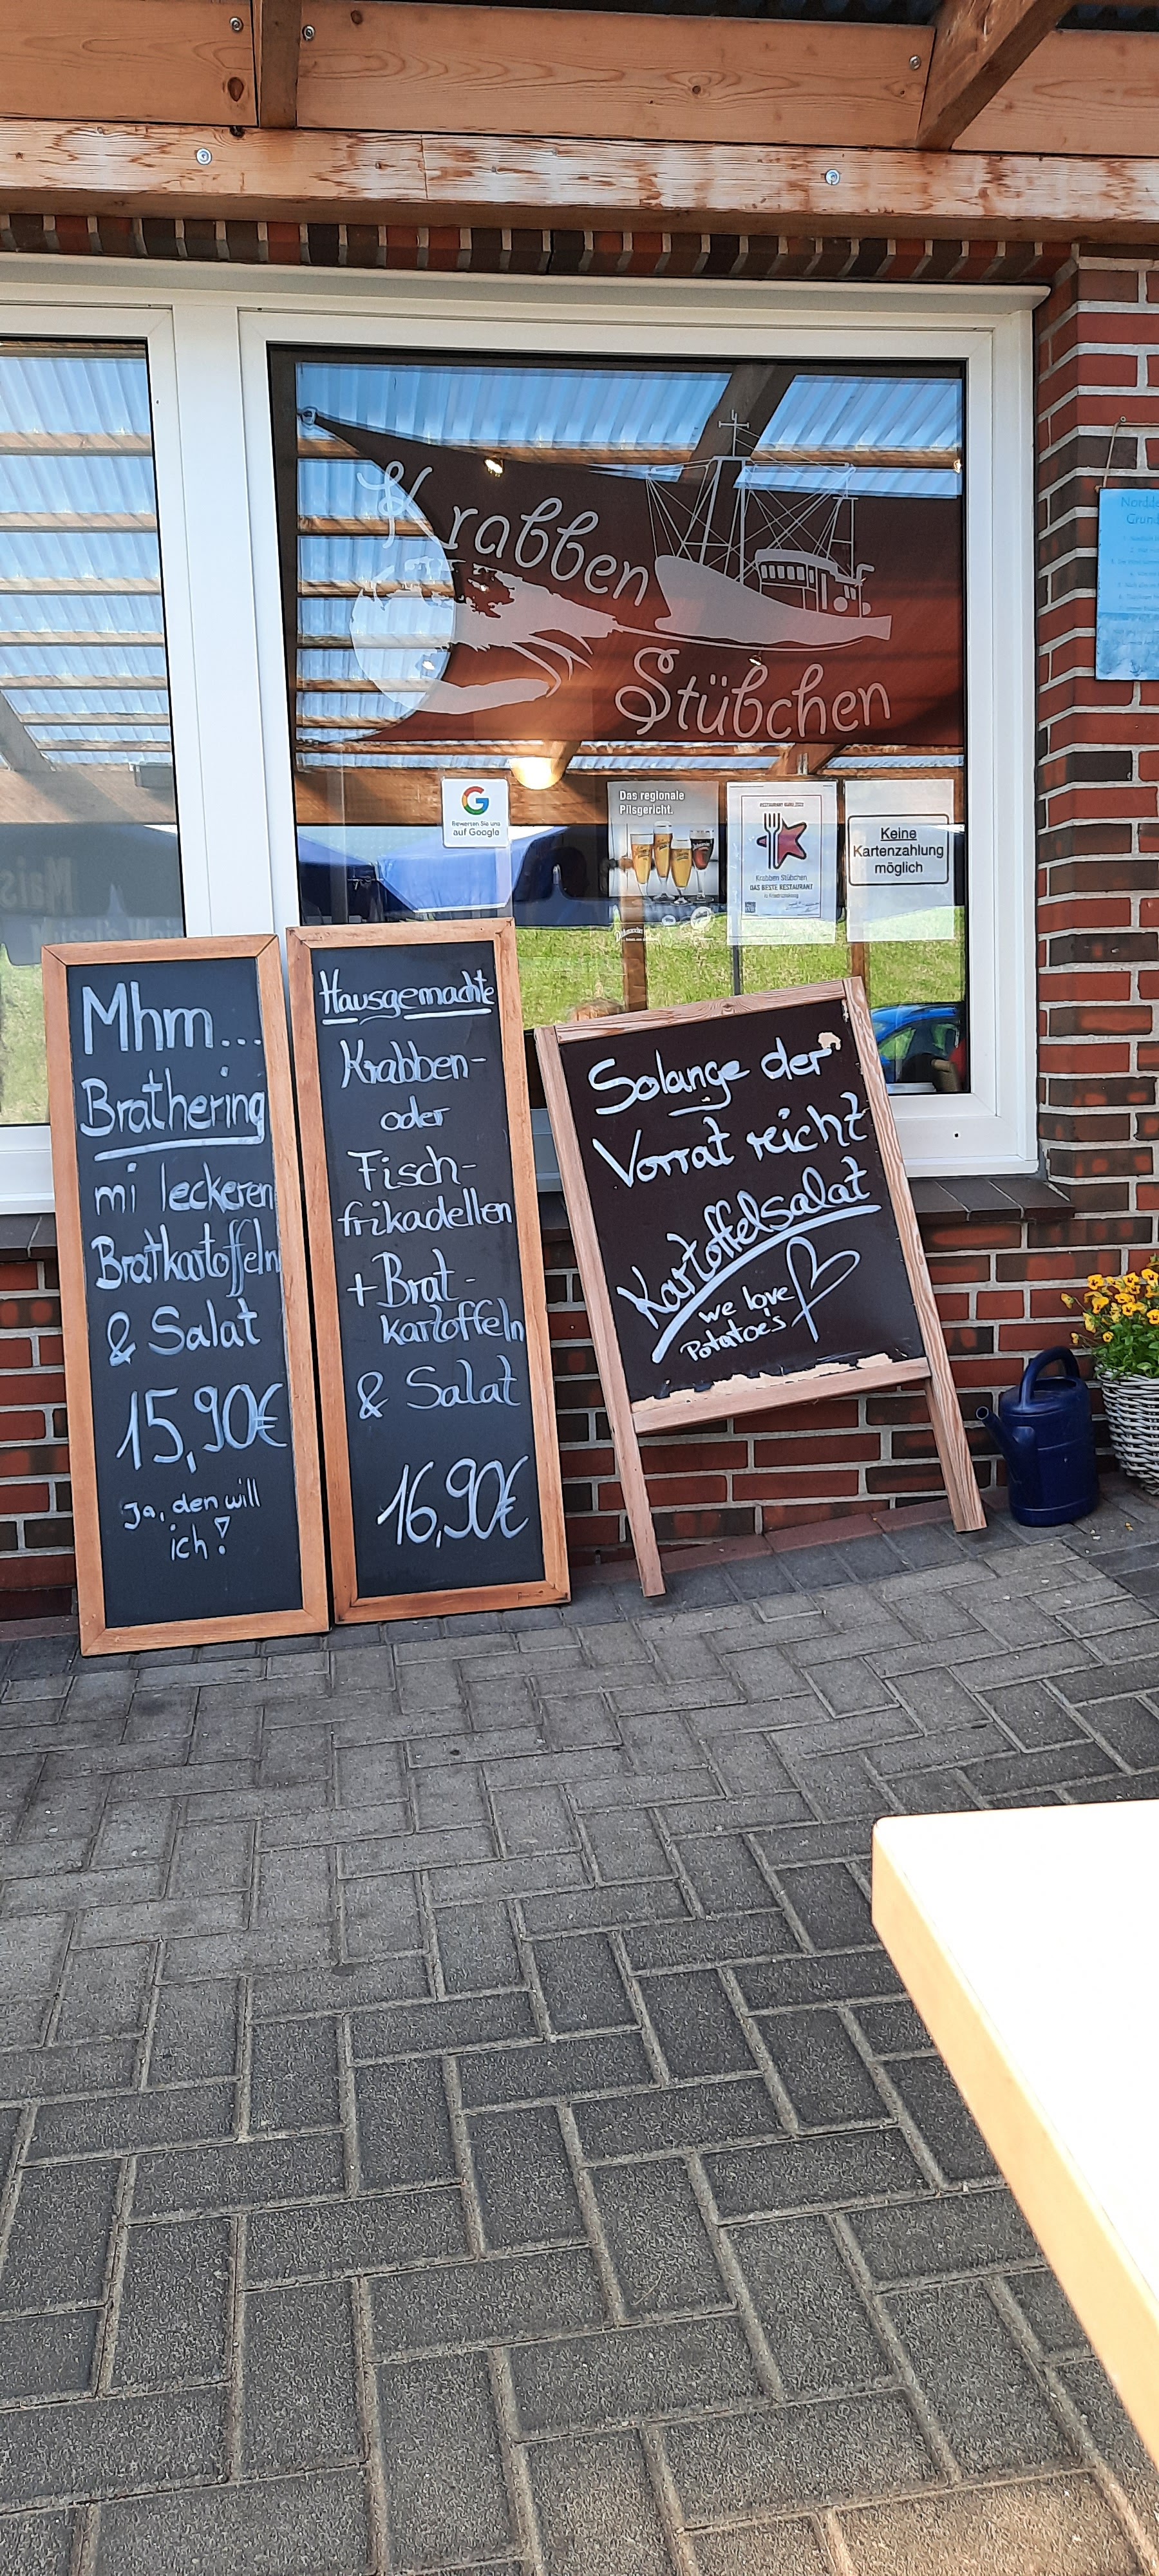 Krabben
Stübchen
Bewerten Sie uns
auf Google
Das regionale
Pilsgericht.
Krabben Stübchen
DAS BESTE RESTAURANT
Keine
Kartenzahlung
möglich
Mhm...
Brathering
mi leckeren
Bratkartoffeln
& Salat
15,90€
Ja, den will
ich!
Hausgemachte
Krabben-
oder
Fisch-
frikadellen
+ Brat-
kartoffeln
& Salat
16,90€
Solange der
Vorrat reicht
Kartoffelsalat
we love
Potatoe's